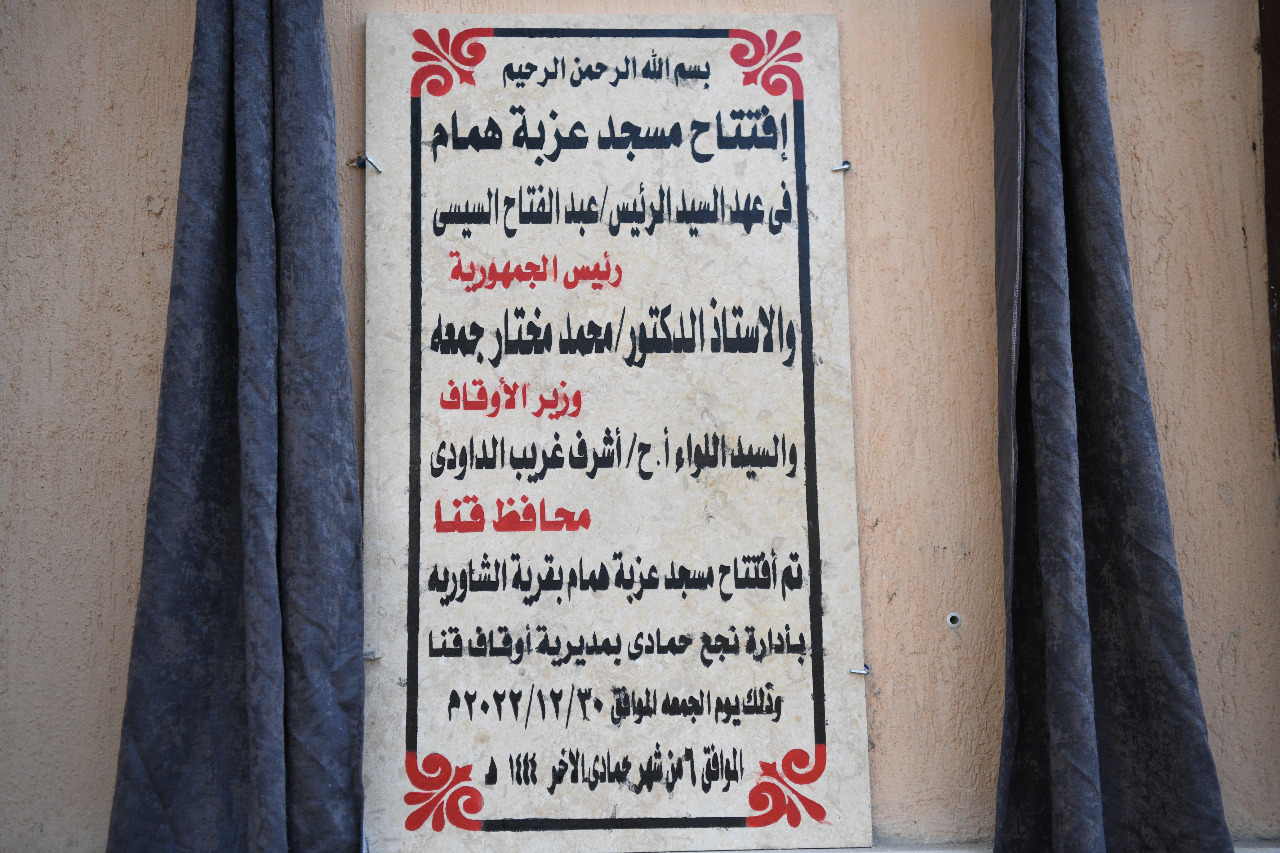 بسم الله الرحمن الرحيم
إفتتاح مسجد عزبة همام
فى عهد السيد الرئيس/عبد الفتاح السيسى
رئيس الجمهورية
والاستاذ الدكتور/محمد مختار جمعه
وزير الأوقاف
والسيد اللواء أ.ح/ أشرف غريب الداودى
محافظ قنا
تم أفتتاح مسجد عزبة همام بقرية الشاوريه
بأدارة نجع حمادى بمديرية أوقاف قنا
وذلك يوم الجمعه الموافق ٢٠٢٢/١٢/٣٠م
الموافق ٦ من شهر جمادى الاخر ١٤٤٤ هـ